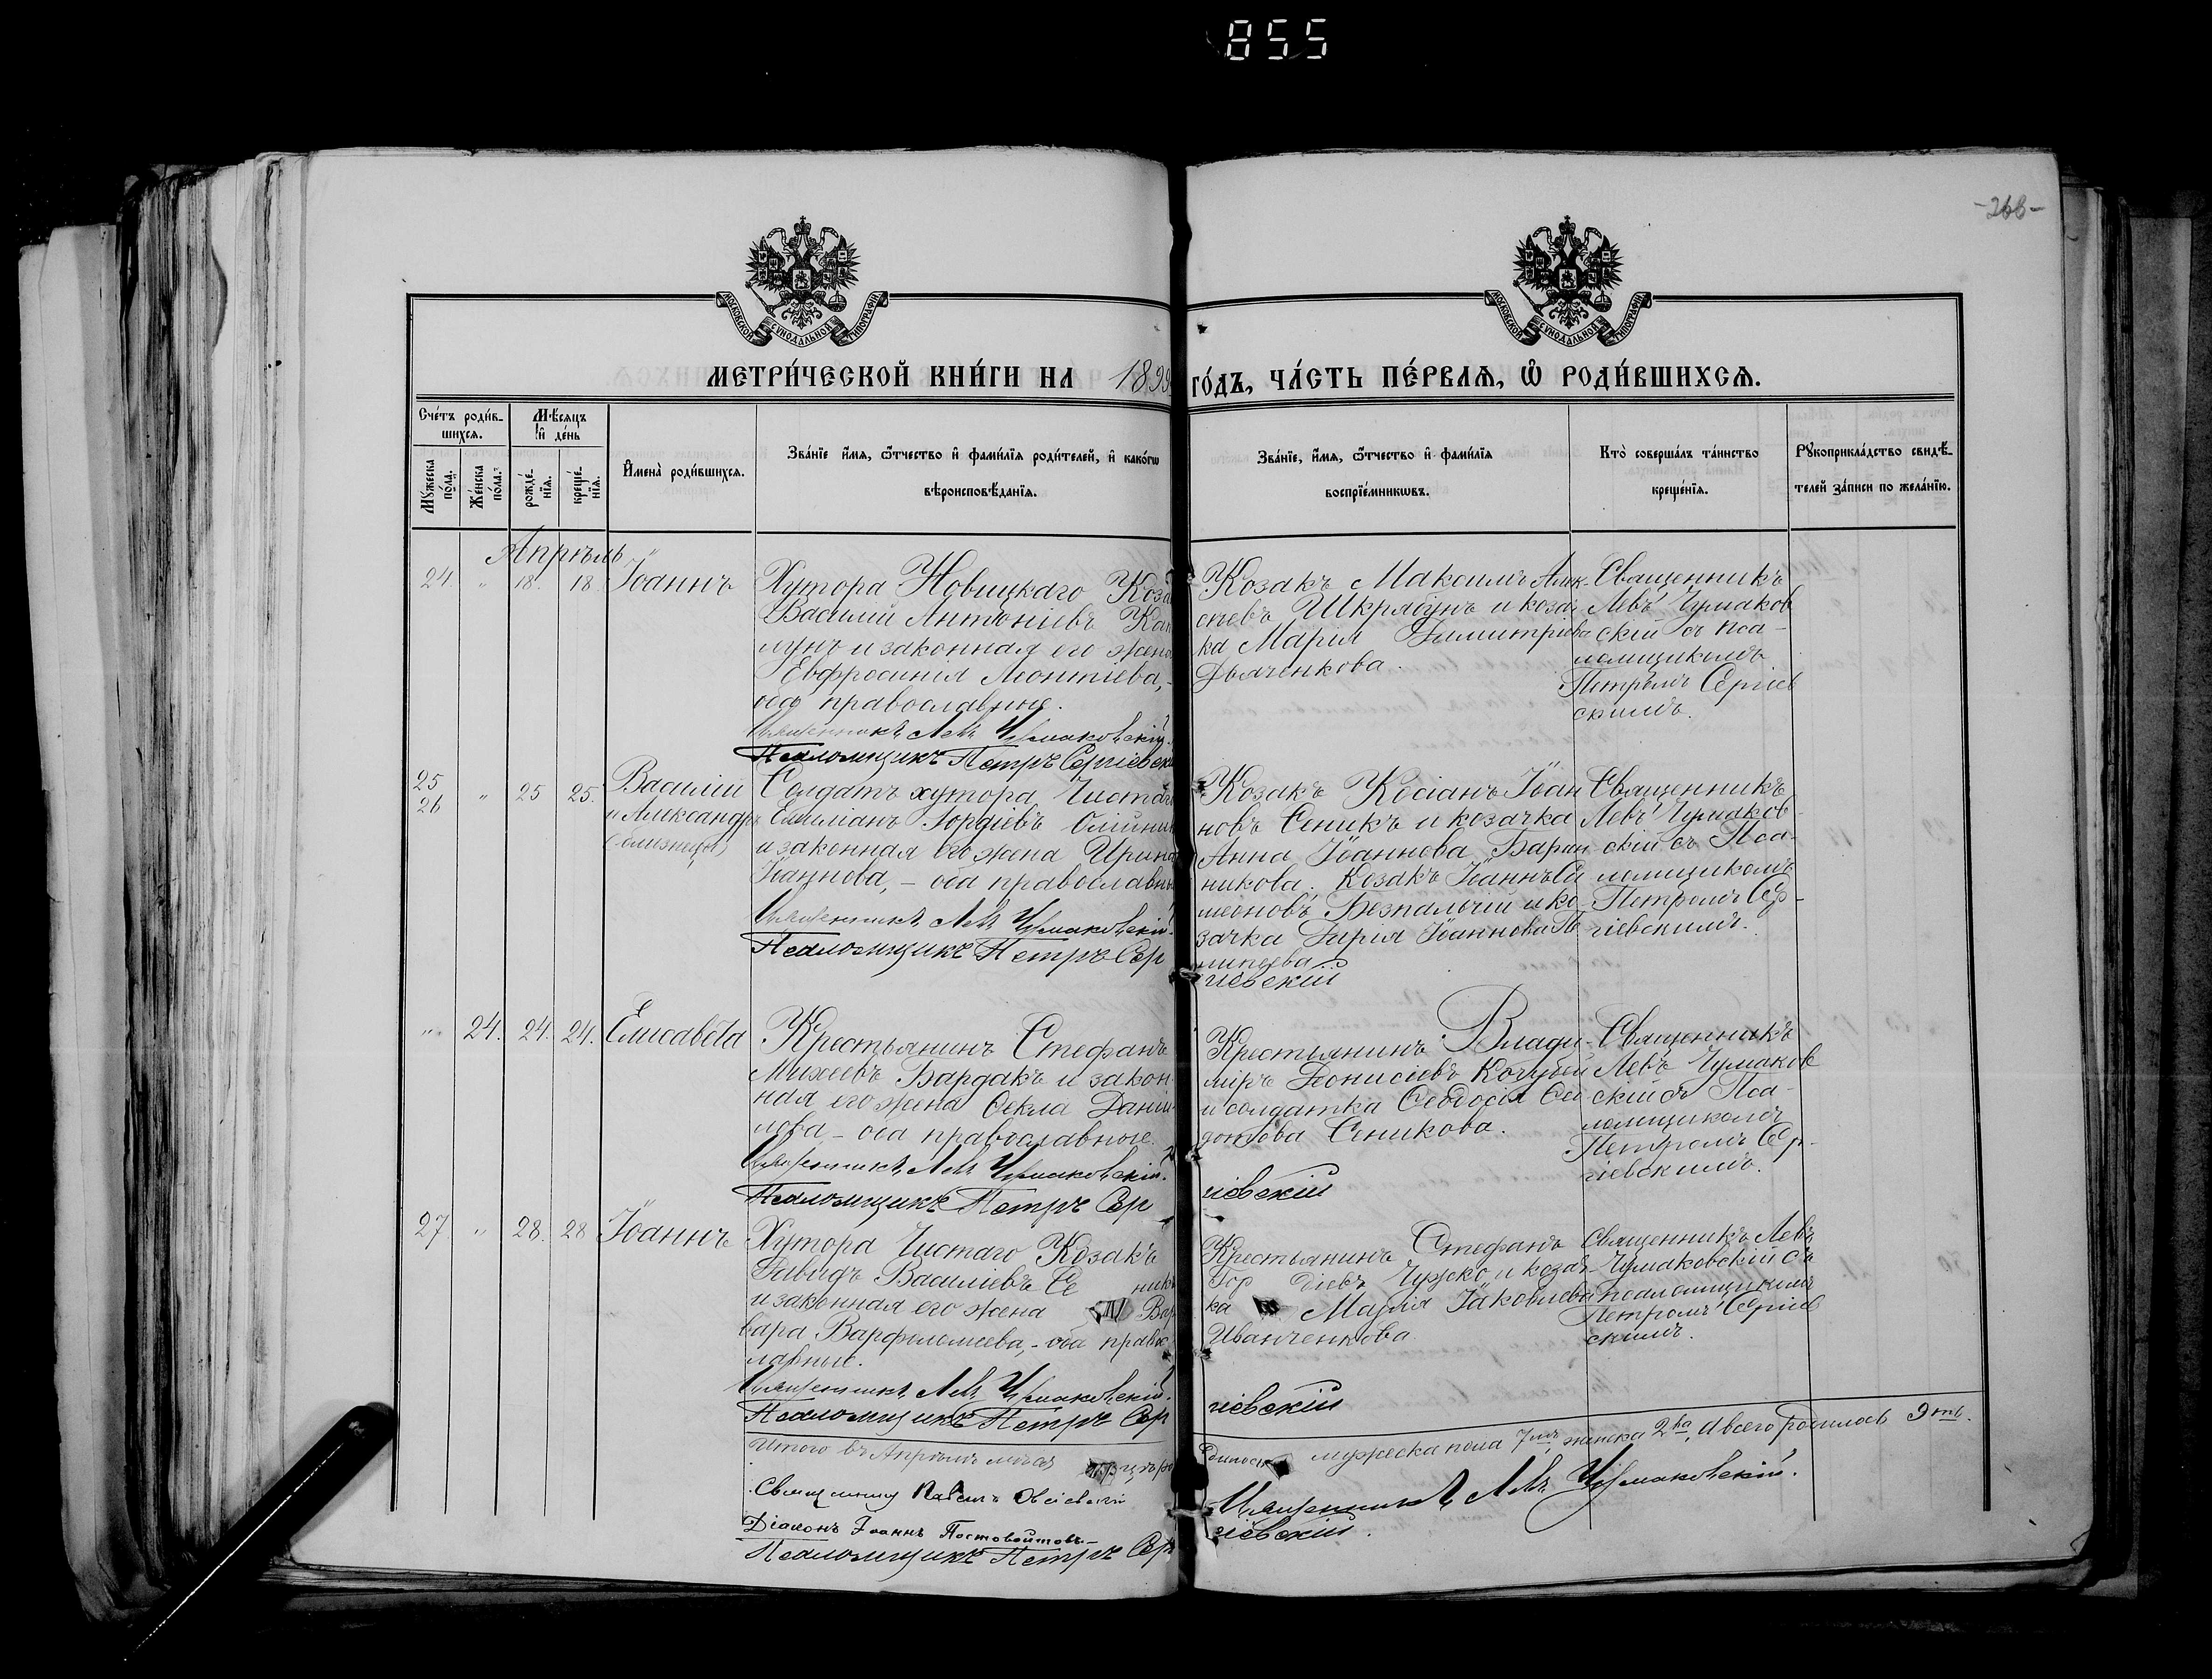 855
-266-
МОСКОВСКОЙ СѴНОДАЛЬНОЙ ТИПОГРАФІИ
МОСКОВСКОЙ СѴНОДАЛЬНОЙ ТИПОГРАФІИ
МЕТРИ́ЧЕСКОЙ КНИ́ГИ НА 1899 ГО́ДЪ, ЧА́СТЬ ПЕ́РВАѦ, Ѿ РОДИ́ВШИХСѦ.
Сче́тъ роди́в-
шихсѧ.
Мѣ́сѧцъ
и҆ де́нь
Мꙋ́жеска по́ла.
Же́нска по́ла.
рожде́-
нїѧ.
креще́-
нїѧ.
И҆мена̀ роди́вшихсѧ.
Зва́нїе и҆́мѧ, ѻ҆́тчество и҆ фами́лїѧ роди́телей, и҆ како́гѡ
вѣроисповѣ́данїѧ.
Зва́нїе, и҆́мѧ, ѻ҆́тчество и҆ фами́лїѧ
воспрїе́мникѡвъ.
Кто̀ соверша́лъ та́инство
креще́нїѧ.
Рꙋкоприкла́дство свидѣ́-
телей за́писи по жела́нїю.
Апрѣль
24. " 18. 18. Іоаннъ
Хутора Новицкаго Коза
Василій Антоніевъ
и законная его жена
Евфросинія Леонтіева,-
оба православные.
Священникъ Левъ Чумаковскій.
Псаломщикъ Петръ Сергіевск
Козакъ Максимъ Алек-
сіевъ Шкрябунъ и козач
ка Марія Димитріева
Дьяченкова.
Священникъ
Левъ Чумаков
скій съ Пса-
ломщикомъ
Петромъ Сергіев
скимъ.
25
26 " 25 25. Василій
и Александръ
(близнецы)
Солдатъ хутора Чистаго
Гордіевъ Олійник
и законная его жена Ирина
Іоаннова, - оба православны
Священникъ Левъ Чумаковскій.
Псаломщикъ Петръ Сер
гіевскій
Козакъ Касіанъ Іоан
новъ Сеникъ и козачка
Анна Іоаннова Баран
никова. Козакъ Іоаннъ Си
меоновъ Безпалый и ко-
зачка Дарія Іоаннова
Священникъ
Левъ Чумаков
скій съ Пса-
ломщикомъ
Петромъ Сер-
гіевскимъ.
" 24. 24. 24. Елисавета
Крестьянинъ Стефанъ
Михеевъ Бардакъ и закон
ная его жена Ѳекла Даніи
лова, - оба православные.
Священникъ Левъ Чумаковскій.
Псаломщикъ Петръ Сер
гіевскій
Крестьянинъ Влади-
міръ Діонисіевъ Кочубей
и солдатка Ѳеодосія Ѳео
дотова Сеникова.
Священникъ
Левъ Чумаков
скій съ Пса-
ломщикомъ
Петромъ Сер-
гіевскимъ.
27 " 28. 28 Іоаннъ
Хутора Чистаго Козакъ
Давидъ Василіевъ Се никъ
и законная его жена Вар
вара Варфоломеева,- оба правос
лавные.
Священникъ Левъ Чумаковскій.
Псаломщикъ Петръ Сер
гіевскій
Крестьянинъ Стефанъ
Гор діевъ Чужко и козач-
ка Марія Іаковлева
Иванченкова.
Священникъ Левъ
Чумаковскій съ
псаломщикомъ
Петромъ Сергіев
скимъ.
Итого въ Апрѣлѣ мѣся цѣ ро
дилось мужеска пола 7мь, женска 2ва, а всего родилось 9ть.
Священникъ Павелъ Овсіевскій
Священникъ Левъ Чумаковскій.
Діаконъ Іоаннъ Постовойтовъ-
Псаломщикъ Петръ Сер
гіевскій.